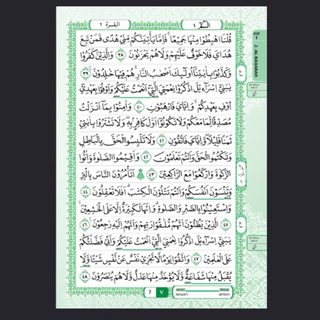 البقرة ٢
الجزء ١
قُلْنَا ٱهْبِطُوا۟ مِنْهَا جَمِيعًا فَإِمَّا يَأْتِيَنَّكُم مِّنِّى هُدًى فَمَن تَبِعَ
هُدَاىَ فَلَا خَوْفٌ عَلَيْهِمْ وَلَا هُمْ يَحْزَنُونَ ٣٨ وَٱلَّذِينَ كَفَرُوا۟
وَكَذَّبُوا۟ بِـَٔايَـٰتِنَآ أُو۟لَـٰٓئِكَ أَصْحَـٰبُ ٱلنَّارِ هُمْ فِيهَا خَـٰلِدُونَ ٣٩
يَـٰبَنِىٓ إِسْرَٰٓءِيلَ ٱذْكُرُوا۟ نِعْمَتِىَ ٱلَّتِىٓ أَنْعَمْتُ عَلَيْكُمْ وَأَوْفُوا۟ بِعَهْدِىٓ
أُوفِ بِعَهْدِكُمْ وَإِيَّـٰىَ فَٱرْهَبُونِ ٤٠ وَءَامِنُوا۟ بِمَآ أَنزَلْتُ
مُصَدِّقًا لِّمَا مَعَكُمْ وَلَا تَكُونُوٓا۟ أَوَّلَ كَافِرٍۭ بِهِۦ وَلَا تَشْتَرُوا۟ بِـَٔايَـٰتِى
ثَمَنًا قَلِيلًا وَإِيَّـٰىَ فَٱتَّقُونِ ٤١ وَلَا تَلْبِسُوا۟ ٱلْحَقَّ بِٱلْبَـٰطِلِ
وَتَكْتُمُوا۟ ٱلْحَقَّ وَأَنتُمْ تَعْلَمُونَ ٤٢ وَأَقِيمُوا۟ ٱلصَّلَوٰةَ وَءَاتُوا۟
ٱلزَّكَوٰةَ وَٱرْكَعُوا۟ مَعَ ٱلرَّٰكِعِينَ ٤٣ أَتَأْمُرُونَ ٱلنَّاسَ بِٱلْبِرِّ
وَتَنسَوْنَ أَنفُسَكُمْ وَأَنتُمْ تَتْلُونَ ٱلْكِتَـٰبَ أَفَلَا تَعْقِلُونَ ٤٤
وَٱسْتَعِينُوا۟ بِٱلصَّبْرِ وَٱلصَّلَوٰةِ وَإِنَّهَا لَكَبِيرَةٌ إِلَّا عَلَى ٱلْخَـٰشِعِينَ
٤٥ ٱلَّذِينَ يَظُنُّونَ أَنَّهُم مُّلَـٰقُوا۟ رَبِّهِمْ وَأَنَّهُمْ إِلَيْهِ رَٰجِعُونَ ٤٦
يَـٰبَنِىٓ إِسْرَٰٓءِيلَ ٱذْكُرُوا۟ نِعْمَتِىَ ٱلَّتِىٓ أَنْعَمْتُ عَلَيْكُمْ وَأَنِّى فَضَّلْتُكُمْ
عَلَى ٱلْعَـٰلَمِينَ ٤٧ وَٱتَّقُوا۟ يَوْمًا لَّا تَجْزِى نَفْسٌ عَن نَّفْسٍ شَيْـًٔا وَلَا
يُقْبَلُ مِنْهَا شَفَـٰعَةٌ وَلَا يُؤْخَذُ مِنْهَا عَدْلٌ وَلَا هُمْ يُنصَرُونَ ٤٨
7 ٧
2. AL BAQARAH